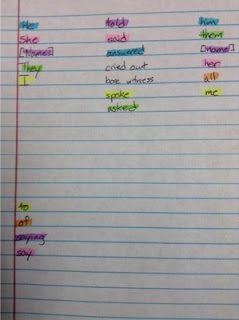 He told him
She said them
[Names] answered [name]
They cried out her
I bore witness all
spoke me
asked
to
of
saying
say